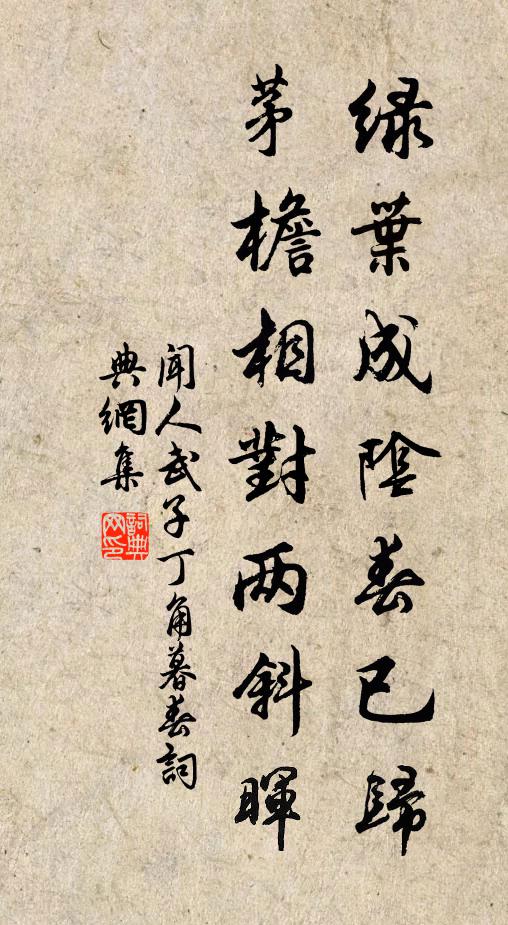 緑葉成陰春已歸
茅檐相對两斜暉
聞人武子丁角暮春詞
典網集
詞典网印